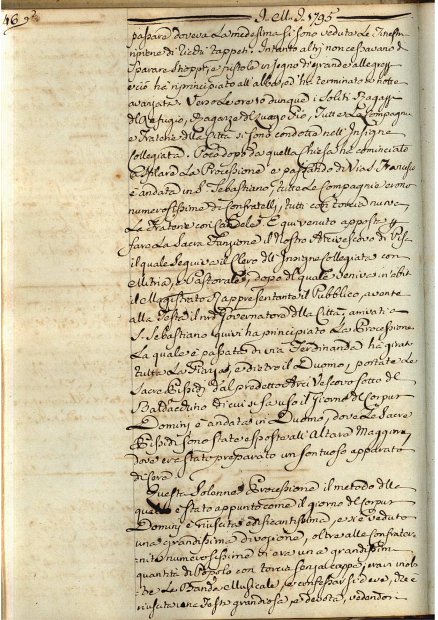 46
J. M. J. 1795
passare doveva La medesima si sono vedute Le Finestre
ripiene di Ricchi tappeti. Intanto altri non cessavano di
Sparare Schioppi, e pistole in segno di grande allegrezza
e ciò ha riprincipiato all'alba, ed ha terminato a notte
avanzata. Verso Le ore 10 dunque i soliti Ragazzi
del Refugio, Ragazze del Luogo Pio, Tutte Le Compagnie
e Fraterie della Città si sono condotte nell'Insigne
Collegiata. Poco dopo da quella Chiesa ha cominciato
a sfilare La Processione e passando di Via S. Francesco
è andata in S. Sebastiano, tutte Le Compagnie erono
numerosissime di Confratelli, tutti con torcia nuova
Le Fraterie con Candele. È qui venuto apposta p
fare La Sacra Funzione il Nostro Arcivescovo di Pisa
il quale seguiva il Clero dell'Insigne Collegiata con
Mitria, e Pastorale, dopo del quale Veniva in abito
il Magistrato Rappresentante il Pubblico, avente
alla Testa il Governatore della Città, arrivati a
S. Sebastiano quivi ha principiato La Processione
La quale è passata di via Ferdinanda ha girato
tutta La Piazza, e dietro il Duomo, portate Le
Sacre dal predetto Arcivescovo sotto del
Baldacchino di cui si fa uso il Giorno del Corpus
Domini è andata in Duomo, dove Le Sacre
sono state esposte all'Altare Maggiore,
dove era stato preparato un sontuoso apparato
di Cera
Questa Solenne Processione il metodo della
quale è stato appunto come il giorno del Corpus
Domini è riuscita edificantissima, e vi è veduto
una grandissima divozione, oltre alle Confraternite
numerosissime vi era una grandissima
quantità di Popolo con torcia senza cappa, era in
Le Bande Musicale p confessar si deve, che è
riuscita una Festa grandiosa p devota, vedendosi